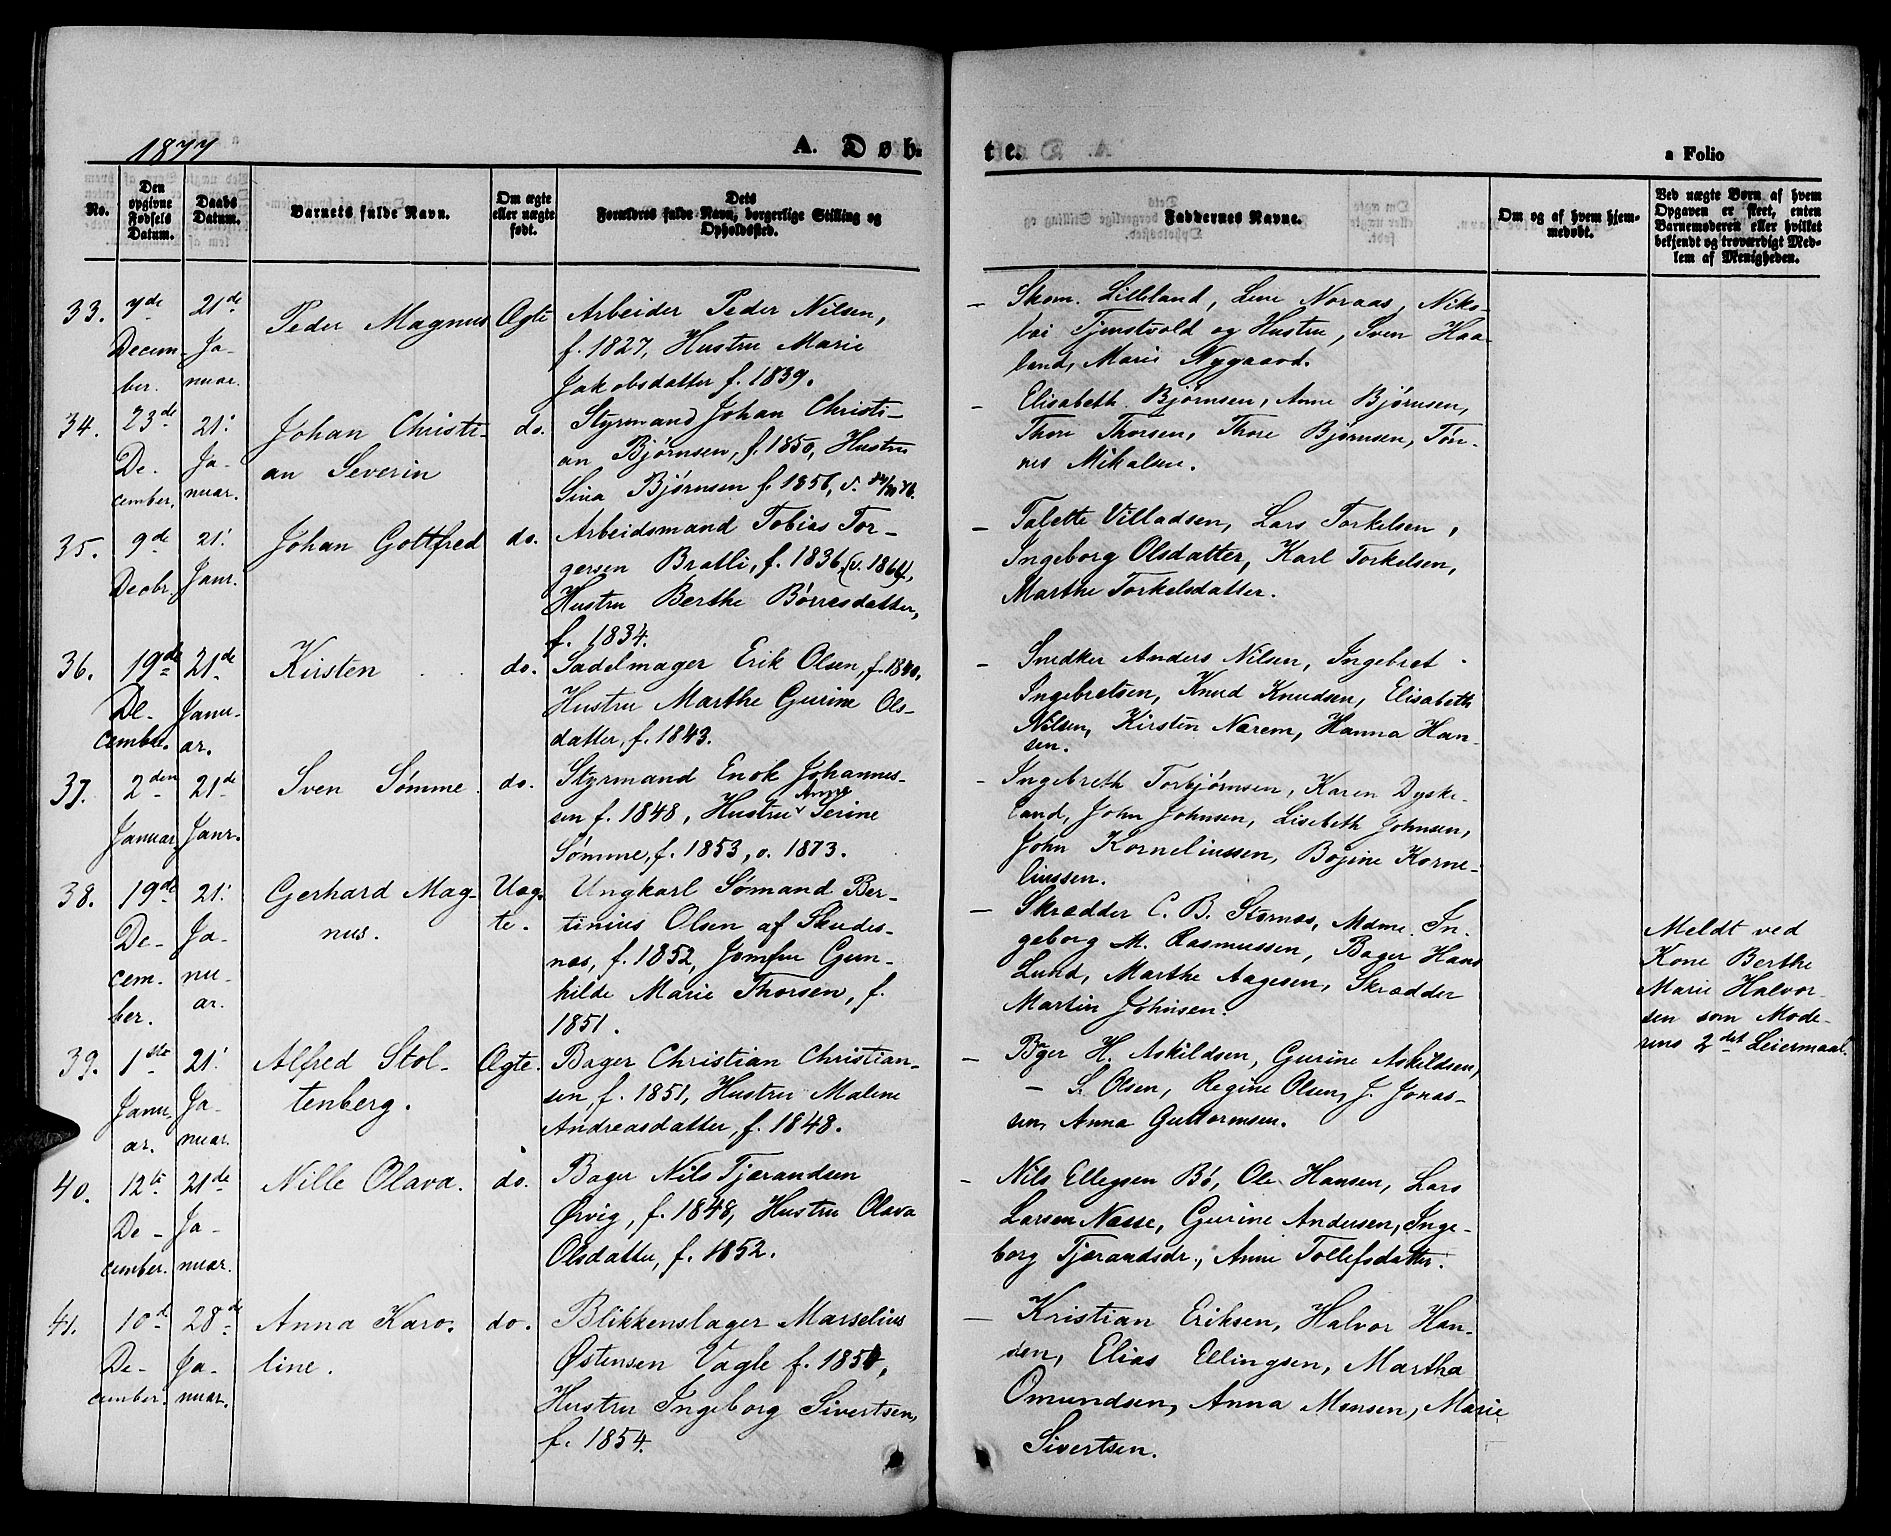 1877
A. Døb-
te.
a Folio
No.
Den opgivne Fødsels Datum.
Daabs Datum.
Barnets fulde Navn.
Om ægte eller uægte født.
Dets Forældres fulde Navn, borgerlige Stilling og Opholdssted.
Faddernes Navne.
Om og af hvem hjemmedøbt.
Ved uægte Børn af hvem Opgaven er skeet, enten Barnemoderen eller hvilket bekjendt og troværdigt Medlem af Menigheden.
33.
7de Decem-
ber.
21de Ja-
nuar.
Peder Magnus
Ægte
Arbeider Peder Nilsen,
f. 1827, Hustru Marie
Jakobsdatter f. 1839.
– Skom. Lilleland, Lene Noraas, Niko-
lai Tjenstvold og Hustru, Sven Haa-
land, Marie Nygaard.
34.
23de De-
cember.
21. Ja-
nuar.
Johan Christi-
an Severin
do.
Styrmand Johan Christi-
an Bjørnsen, f. 1850, Hustru
Sina Bjørnsen f. 1856, v.
– Elisabeth Bjørnsen, Anne Bjørnsen,
Thore Thorsen, Thore Bjørnsen, Tøn-
nes Mikalsen.
35.
9de
Decbr.
21.
Janr.
Johan Gottfred
do.
Arbeidsmand Tobias Tor-
gersen Bratli, f. 1836, (v. 1864),
Hustru Berthe Børresdatter,
f. 1834.
– Talette Villadsen, Lars Torkelsen,
Ingeborg Olsdatter, Karl Torkelsen,
Marthe Torkelsdatter.
36.
19de
De-
cember.
21de
Janu-
ar.
Kirsten
do.
Sadelmager Erik Olsen, f. 1840,
Hustru Marthe Gurine Ols-
datter, f. 1843.
– Snedker Anders Nilsen, Ingebret
Ingebretsen, Knud Knudsen, Elisabeth
Nilsen, Kirsten Nærem, Hanna Han-
sen.
37.
2den
Januar
21de
Janr.
Sven Sømme
do.
Styrmand Enok Johannes-
sen f. 1848, Hustru Anne Serine
Sømme, f. 1853, v. 1873.
– Ingebreth Torbjørnsen, Karen Dyske-
land, John Johnsen, Lisebeth Johnsen,
John Korneliussen, Bojine Korne-
liussen.
38.
19de
De-
cem-
ber.
21.
Ja-
nu-
ar.
Gerhard Mag-
nus.
Uæg-
te.
Ungkarl Sømand Ber-
tinius Olsen af Skudes-
næs, f. 1852, Jomfru Gun-
hilde Marie Thorsen, f.
1851.
– Skrædder C. B. Stornæs, Mdme. In-
geborg M. Rasmussen, Bager Hans
Lund, Marthe Aagesen, Skrædder
Martin Johnsen.
Meldt ved
Kone Berthe
Marie Halvor-
sen som Mode-
rens 2det Leiermaal.
39.
1ste
Janu-
ar.
21.
Ja-
nuar.
Alfred Stol-
tenberg.
Ægte.
Bager Christian Christian-
sen, f. 1851, Hustru Malene
Andreasdatter, f. 1848.
– Bager H. Askildsen, Gurine Askildsen,
– S. Olsen, Regine Olsen, J. Jonas-
sen, Anna Guttormsen.
40.
12te
De-
cember.
21de
Ja-
nuar.
Nille Olava.
do.
Bager Nils Tjerandsen
Ørvig, f. 1848, Hustru Olava
Olsdatter, f. 1852.
– Nils Ellegsen Bø, Ole Hansen, Lars
Larsen Næsse, Gurine Andersen, Inge-
borg Tjerandsdr., Anne Tollefsdatter.
41.
10de
De-
cember.
28de
Ja-
nuar.
Anna Karo-
line.
do.
Blikkenslager Marselius
Østensen Vagle f. 1854,
Hustru Ingeborg Sivertsen,
f. 1854.
– Kristian Eriksen, Halvor Han-
sen, Elias Ellingsen, Martha
Omundsen, Anna Monsen, Marie
Sivertsen.